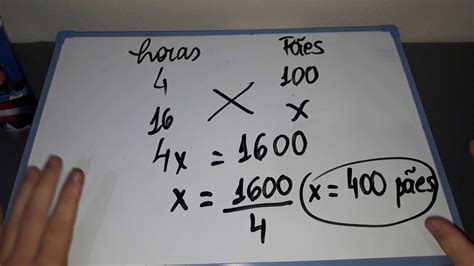 horas Pães
4 100
16 x
4x = 1600
x = 1600/4 x = 400 pães